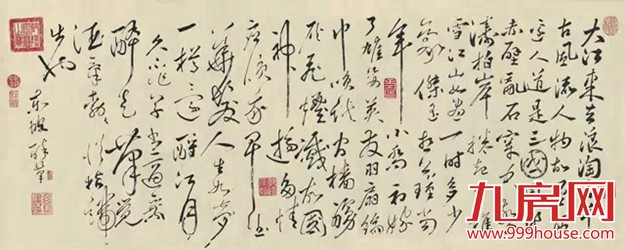 大江東去浪淘盡
古風流人物故壘西
邊人道是三國周
赤壁亂石穿空驚
濤拍岸捲起堆
雪江山如畫一時多少
豪傑遙想公瑾當
年小喬初嫁
了雄姿英發羽扇綸
巾談笑間檣櫓
灰飛煙滅故國
神遊多情
應我早生
華髮人生如夢
一樽還酹江月
久不作草書適乘
醉走筆覺
酒氣勃勃從指端
出也
東坡醉筆
九房网
www.999house.com